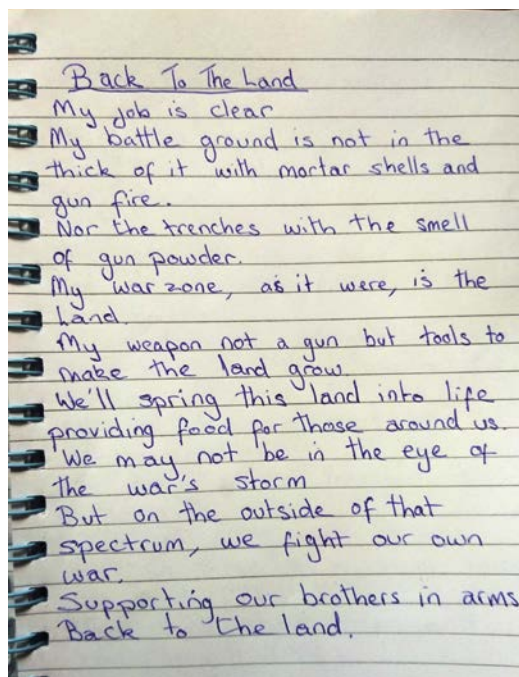 Back To The Land
My job is clear
My battle ground is not in the
thick of it with mortar shells and
gun fire.
Nor the trenches with the smell
of gun powder.
My war zone, as it were, is the
Land.
My weapon not a gun but tools to
make the land grow.
We'll spring this land into life
providing food for those around us.
We may not be in the eye of
the war's storm
But on the outside of that
spectrum, we fight our own
war.
Supporting our brothers in arms
Back to the land.